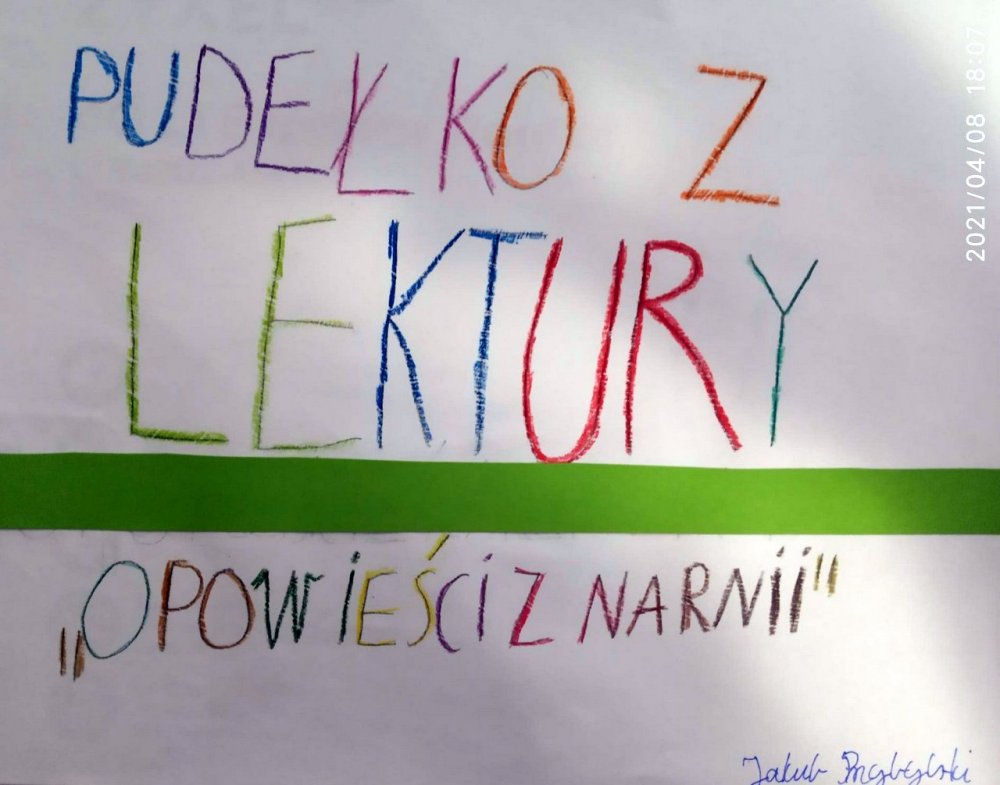 PUDEŁKO Z
LEKTURY
„OPOWIEŚCI Z NARNII"
Jakub Przybylski
2021/04/08 18:07